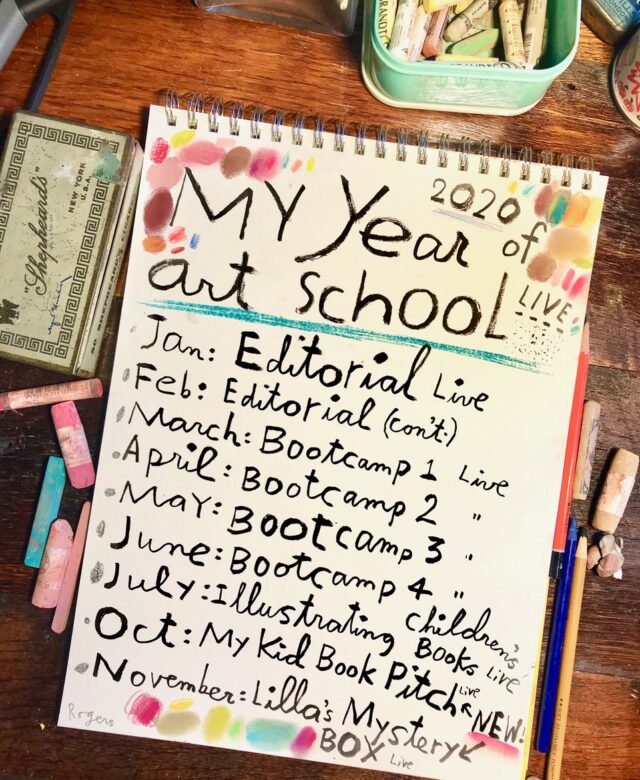 MY Year of
2020
art school
LIVE
Jan: Editorial Live
Feb: Editorial (con't.)
March: Bootcamp 1 Live
April: Bootcamp 2 "
May: Bootcamp 3 "
June: Bootcamp 4 "
July: Illustrating children's
Books Live
Oct: My Kid Book Pitch Live
NEW!
November: Lilla's Mystery
BOX Live
Rogers
"Shepheards"
NEW YORK
U.S.A.